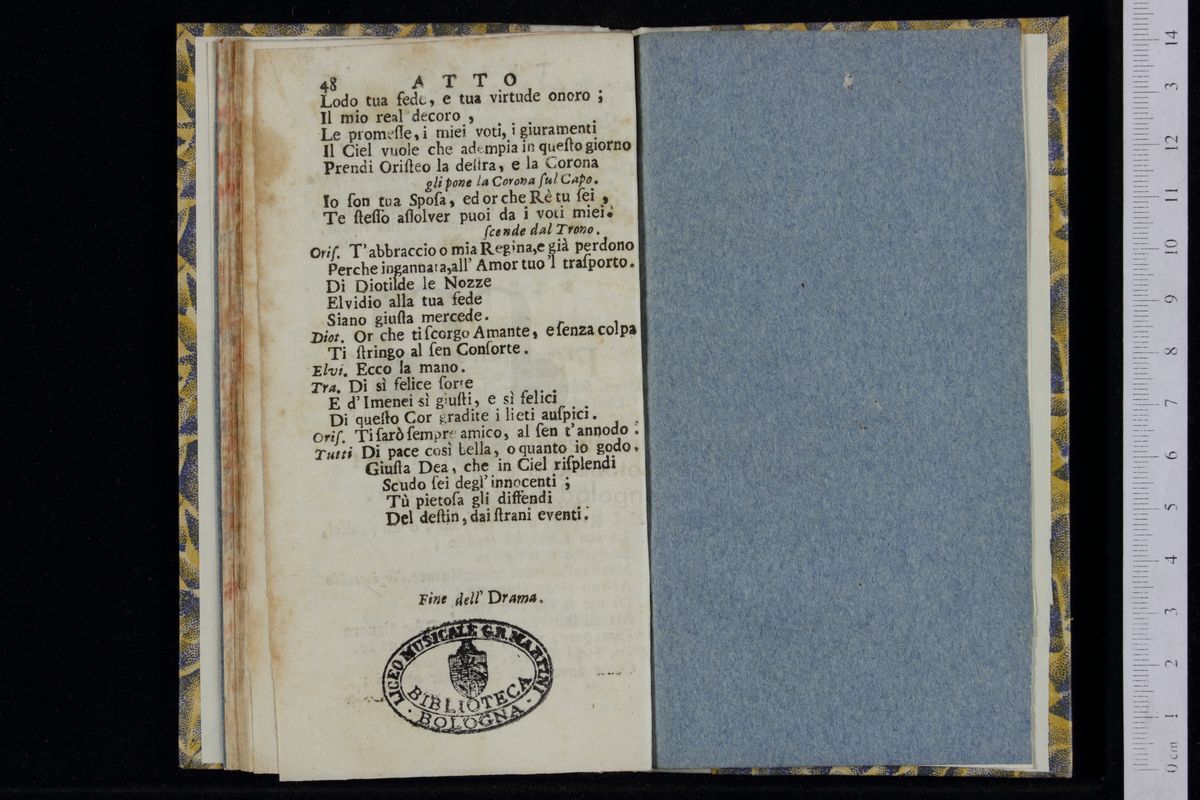 48 ATTO
Lodo tua fede, e tua virtude onoro ;
Il mio real decoro ,
Le promeſſe, i miei voti, i giuramenti
Il Ciel vuole che adempia in queſto giorno
Prendi Oriſteo la deſtra, e la Corona
gli pone la Corona ſul Capo.
Io ſon tua Spoſa, ed or che Rè tu ſei ,
Te ſteſſo aſſolver puoi da i voti miei.
ſcende dal Trono.
Oriſ. T'abbraccio o mia Regina, e già perdono
Perche ingannata, all' Amor tuo 'l traſporto.
Di Diotilde le Nozze
Elvidio alla tua fede
Siano giuſta mercede.
Diot. Or che ti ſcorgo Amante, e ſenza colpa
Ti ſtringo al ſen Conſorte.
Elvi. Ecco la mano.
Tra. Di sì felice ſorte
E d'Imenei sì giuſti, e sì felici
Di queſto Cor gradite i lieti auſpici.
Oriſ. Ti ſarò ſempre amico, al ſen t'annodo :
Tutti Di pace così bella, o quanto io godo.
Giuſta Dea, che in Ciel riſplendi
Scudo ſei degl' innocenti ;
Tù pietoſa gli diffendi
Del deſtin, dai ſtrani eventi.
Fine dell' Drama.
LICEO MUSICALE G.B. MARTINI
BIBLIOTECA
· BOLOGNA ·
0 cm 1 2 3 4 5 6 7 8 9 10 11 12 3 14